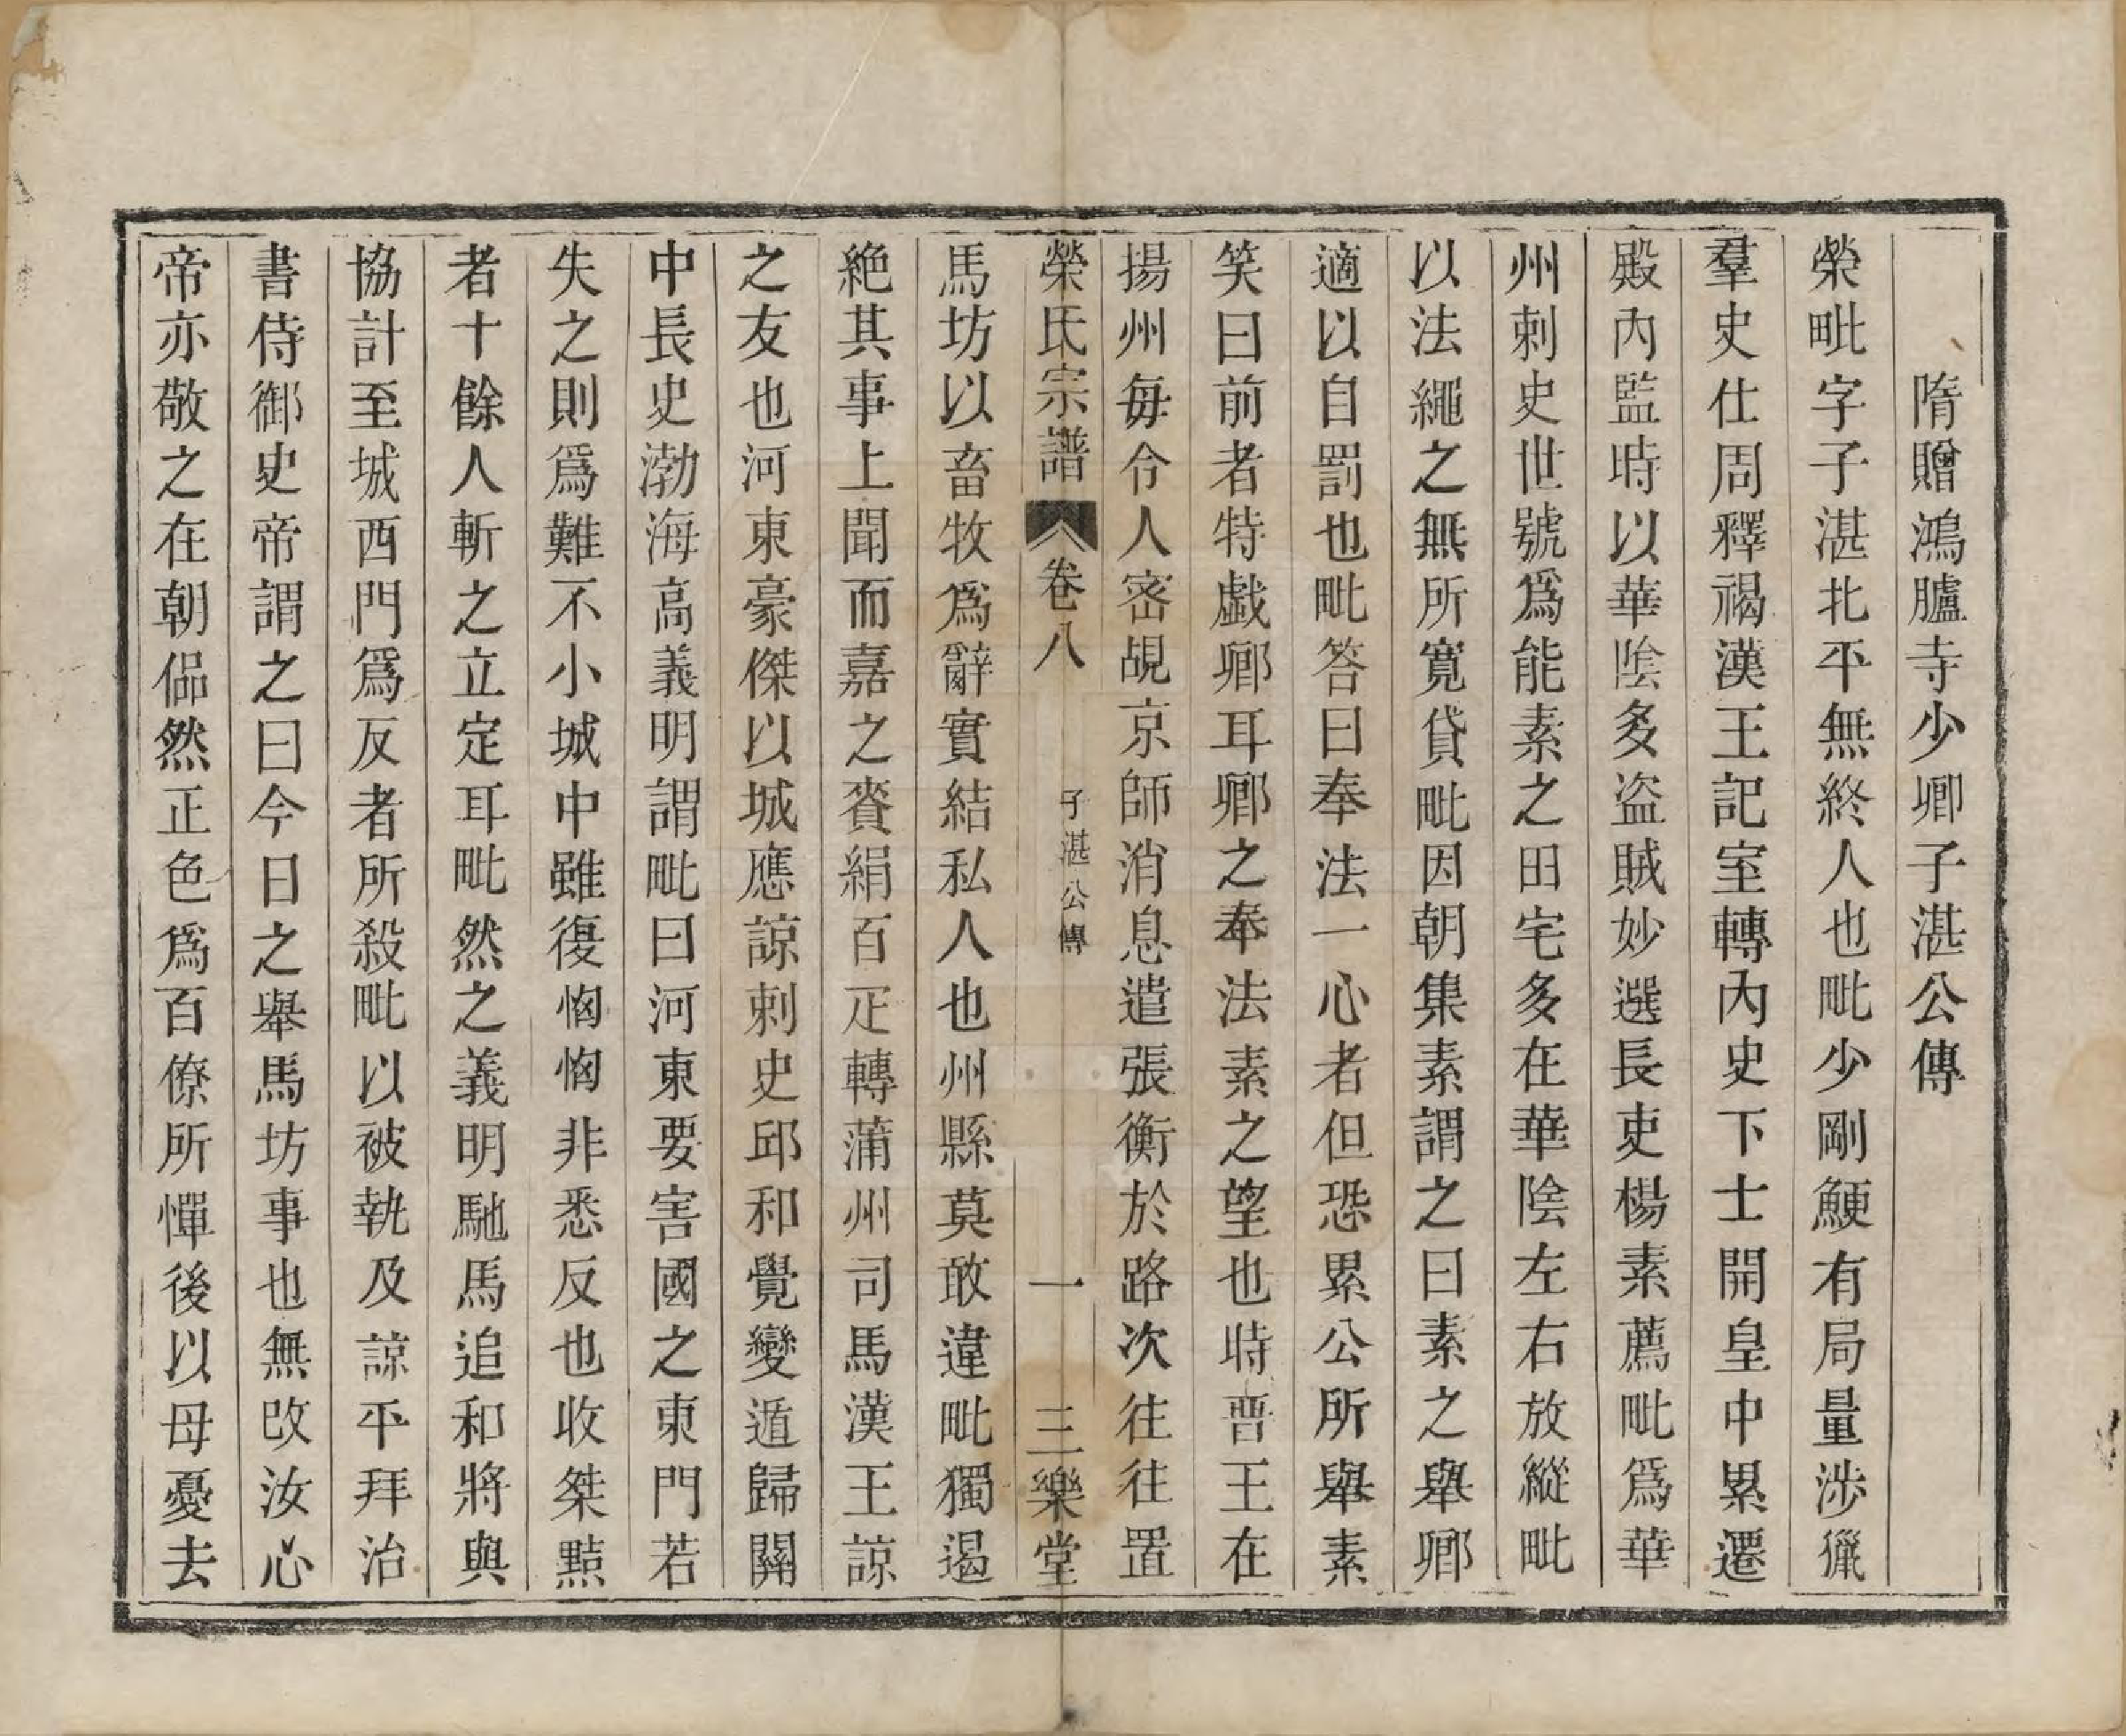 隋贈鴻臚寺少卿子湛公傳
榮毗字子湛北平無終人也毗少剛鯁有局量涉獵
羣史仕周釋褐漢王記室轉內史下士開皇中累遷
殿內監時以華陰多盜賊妙選長吏楊素薦毗爲華
州刺史世號爲能素之田宅多在華陰左右放縱毗
以法繩之無所寬貸毗因朝集素謂之曰素之舉卿
適以自罰也毗答曰奉法一心者但恐累公所舉素
笑曰前者特戯卿耳卿之奉法素之望也時晋王在
揚州每令人密覘京師消息遣張衡於路次往往置
榮氏宗譜 卷八 子湛公傳 一 三樂堂
馬坊以畜牧爲辭實結私人也州縣莫敢違毗獨遏
絕其事上聞而嘉之賚絹百疋轉蒲州司馬漢王諒
之友也河東豪傑以城應諒刺史邱和覺變遁歸關
中長史渤海高義明謂毗曰河東要害國之東門若
失之則爲難不小城中雖復恟恟非悉反也收桀黠
者十餘人斬之立定耳毗然之義明馳馬追和將與
協計至城西門爲反者所殺毗以被執及諒平拜治
書侍御史帝謂之曰今日之舉馬坊事也無改汝心
帝亦敬之在朝偘然正色爲百僚所憚後以母憂去